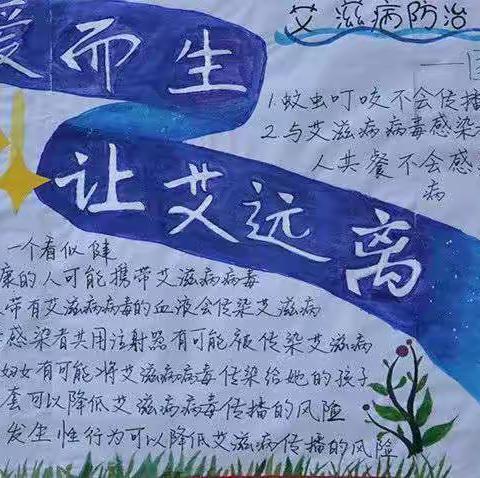 爱而生
让艾远离
艾滋病防治
1.蚊虫叮咬不会传播
2.与艾滋病病毒感染
人共餐不会感
病
一个看似健
康的人可能携带艾滋病病毒
带有艾滋病病毒的血液会传染艾滋病
感染者共用注射器有可能被传染艾滋病
妇女有可能将艾滋病病毒传染给她的孩子
套可以降低艾滋病病毒传播的风险
发生性行为可以降低艾滋病传播的风险